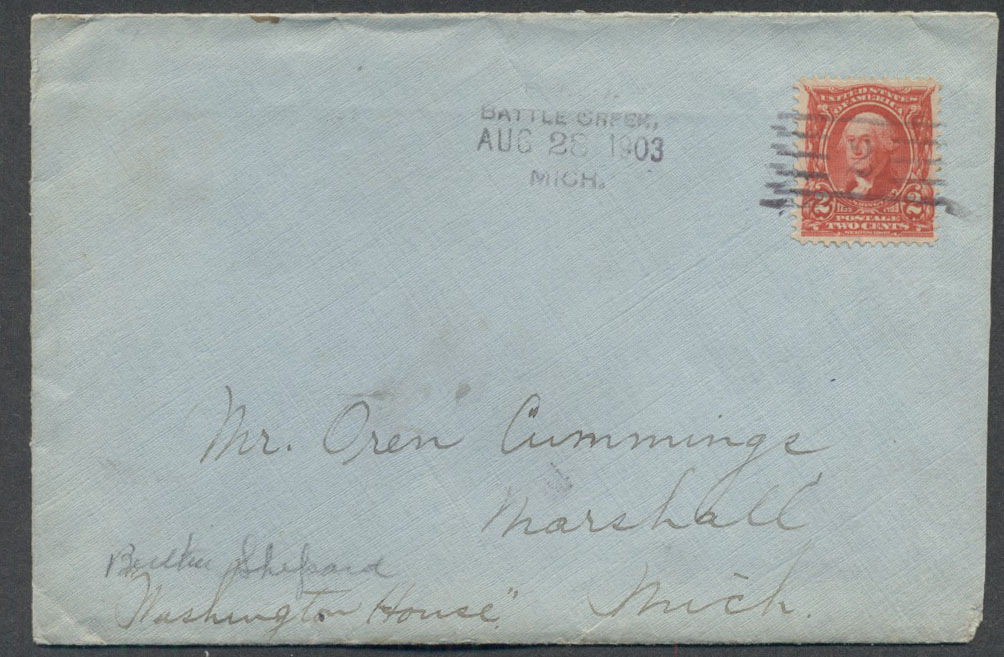 BATTLE CREEK,
AUG 28 1903
MICH.
UNITED STATES
OF AMERICA
2 2
POSTAGE
TWO CENTS
Mr. Oren Cummings
Marshall
Shepard
"Washington House"
Mich.